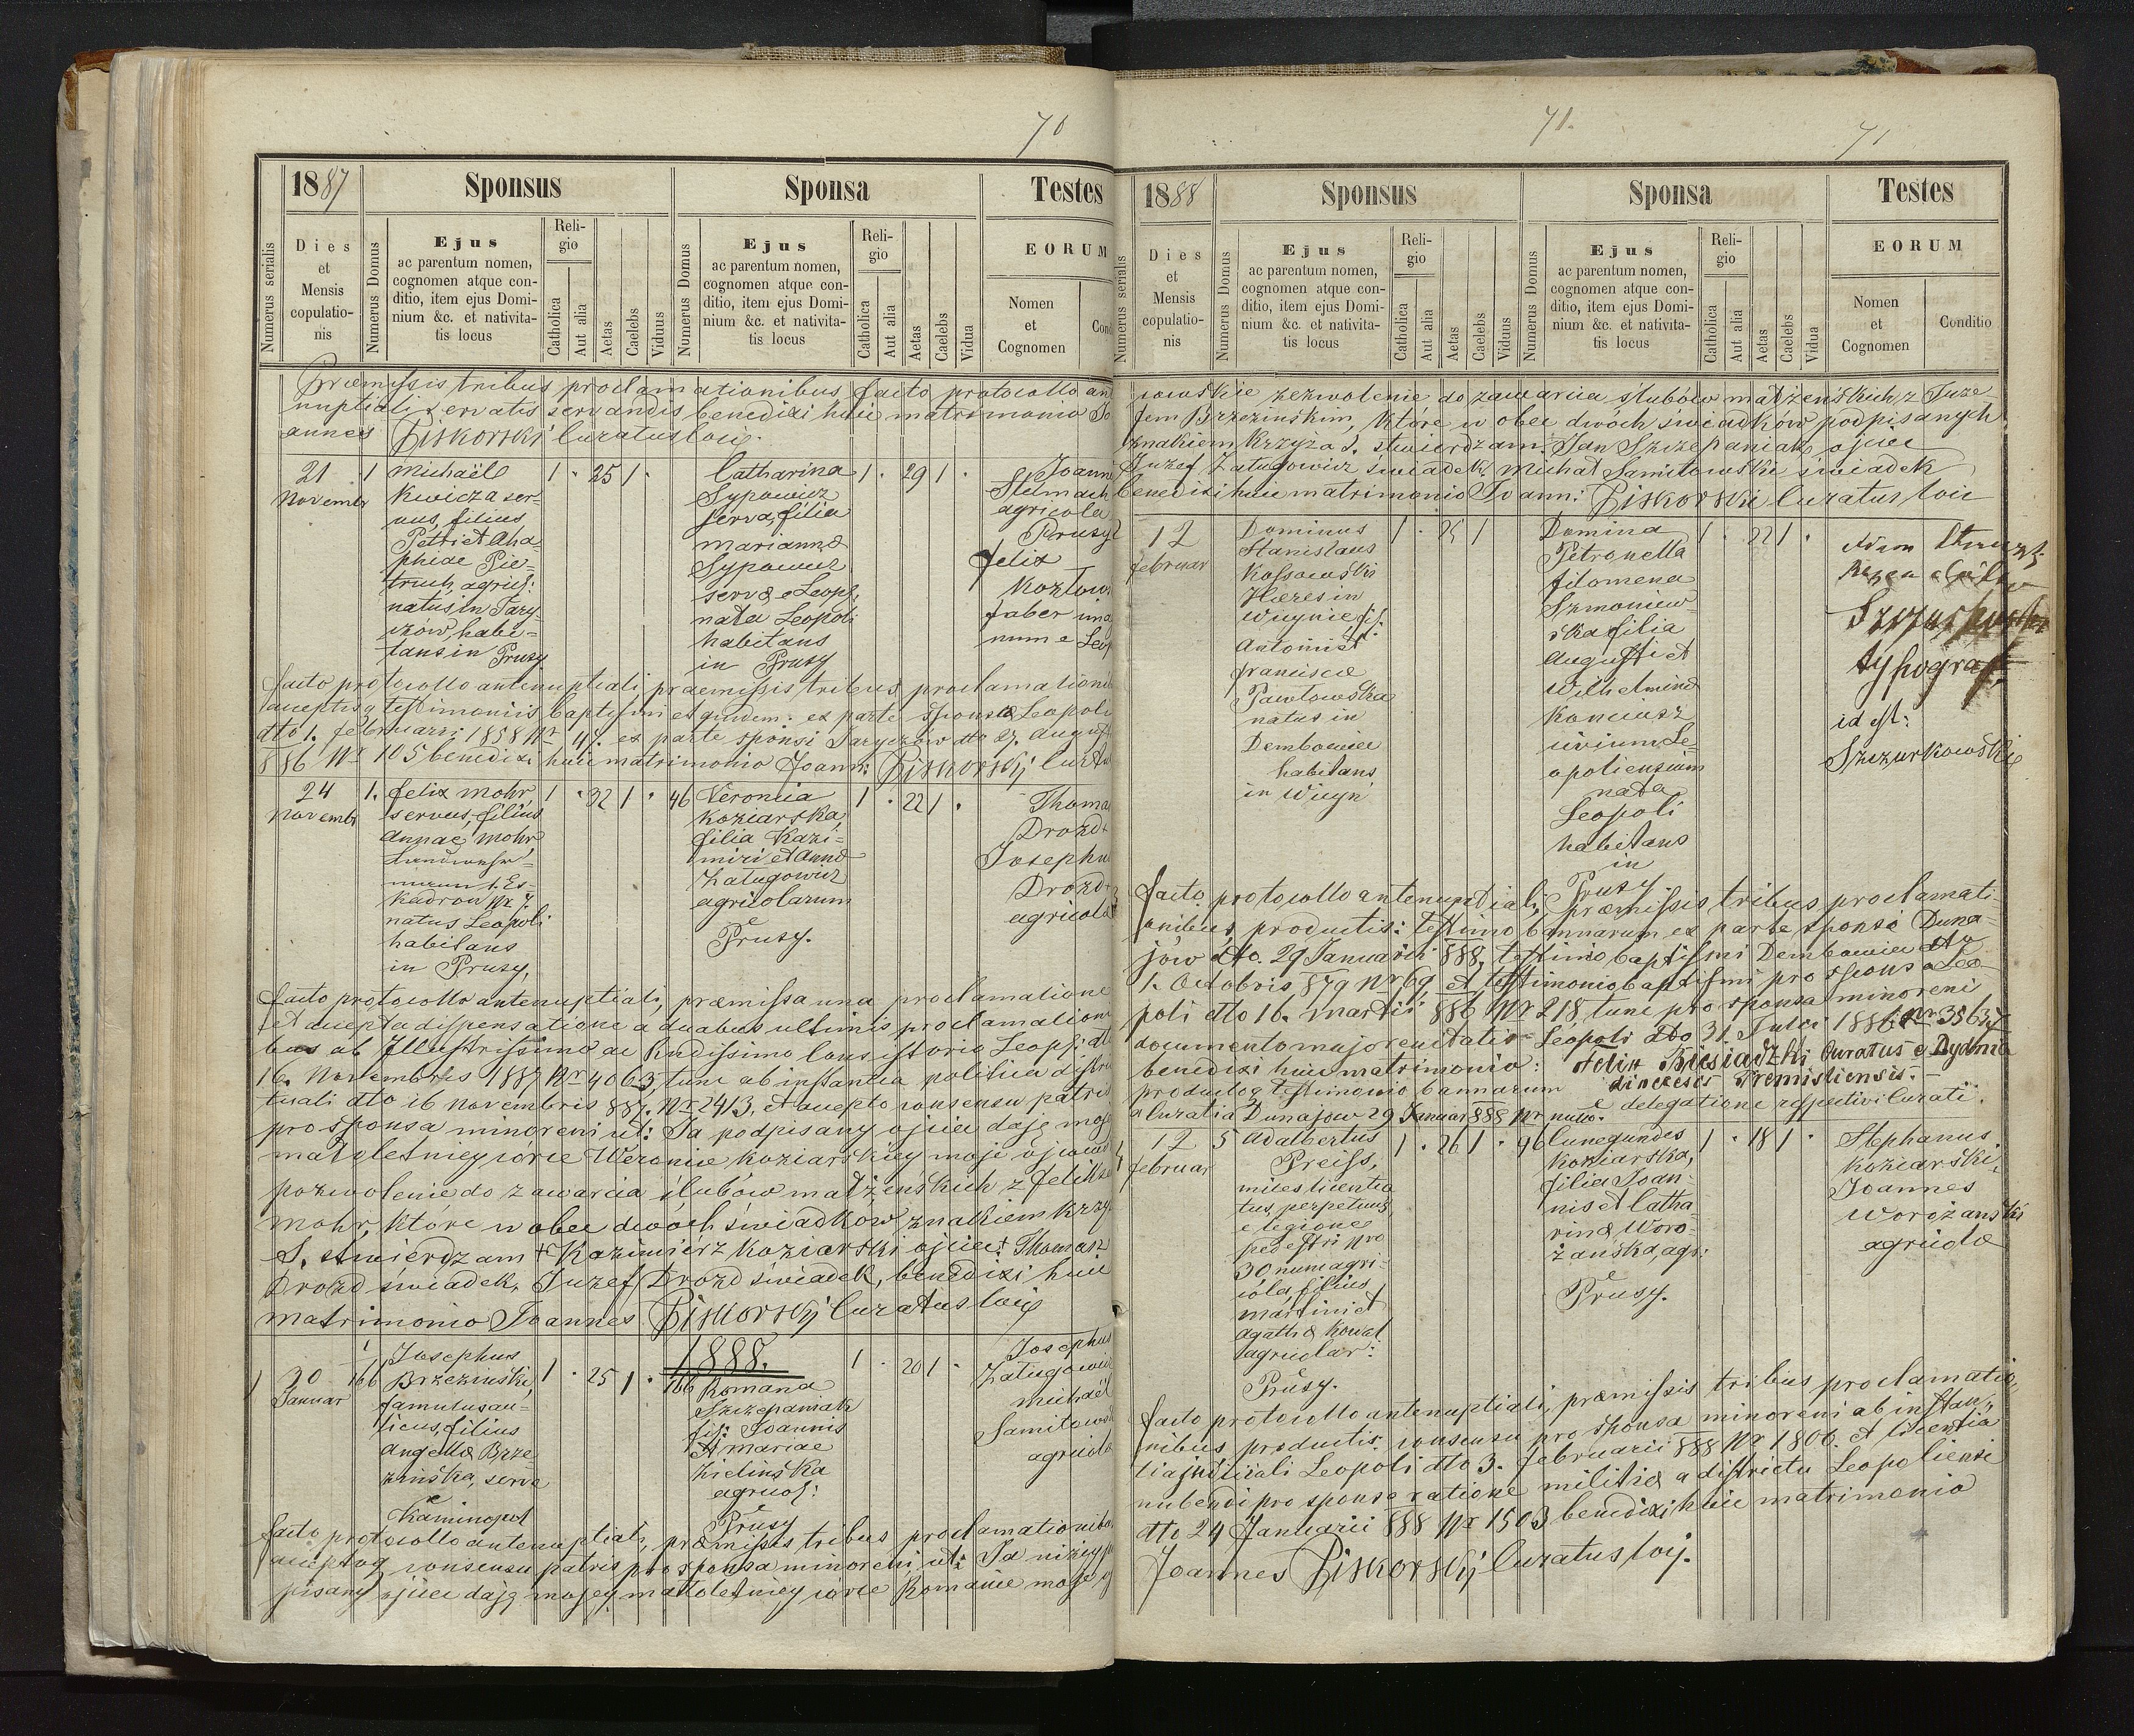 70
1887
Sponsus
Sponsa
Testes
Numerus serialis
Dies
et
Mensis
copulatio-
nis
Numerus Domus
Ejus
ac parentum nomen,
cognomen atque con-
ditio, item ejus Domi-
nium &c. et nativita-
tis locus
Reli-
gio
Catholica
Aut alia
Aetas
Caelebs
Viduus
Numerus Domus
Ejus
ac parentum nomen,
cognomen atque con-
ditio, item ejus Domi-
nium &c. et nativita-
tis locus
Reli-
gio
Catholica
Aut alia
Aetas
Caelebs
Vidua
EORUM
Nomen
et
Cognomen
Praemissis tribus proclamationibus facto protocollo an
nuptiali servatis servandis benedixi huic matrimonio Jo
annes Piskorski Curatus loci.
21
Novembr
1
Michaël
Kwicza ser-
vus, filius
Petri et Aha-
phiae Pie-
truch, agric:
natus in Jary-
czów, habi-
tans in Prusy
1 . 25 1 .
Catharina
Sypowicz
serva, filia
Mariannæ
Sypowicz
servæ e Leop:
nata Leopoli
habitans
in Prusy
1 . 29 1 .
Joann
Stelmach
agricola
Prusy
Felix
Kozłow
faber
num e Leop
facto protocollo antenuptiali, praemissis tribus proclamationi
acceptisq testimoniis baptismi et quidem: ex parte sponsæ Leopoli
dto 1. februarii 1858 Nr 44. ex parte sponsi Jaryczów dto 27. August
886 Nr 105 benedixi huic matrimonio Joann: Piskorskij Curatus
24
Novembr
1.
Felix Mohr,
servus, filius
Annae Mohr,
Kadron Nr 7.
natus Leopoli
habitans
in Prusy,
1 . 32 1 .
46
Veronica
Koziarska,
filia Kazi-
miri et Annæ
Załugowicz
agricolarum
e
Prusy.
1 . 22 1 .
Thoma
Drozd
Josephu
Drozd
agricolæ
facto protocollo antenuptiali, præmissa una proclamatione
et accepta dispensatione a duabus ultimis proclamation
bus ab Illustrissimo ac Rndissimo Consistorio Leopol: dto
16. Novembris 1887 Nr 4063, tunc ab instantia politica distri
tuali dto 16 novembris 887. Nr 2413, et accepto consensu patris
pro sponsa minoreni ut: Ja podpisany ojciec daję moje
małoletniey córce Weronice Koziarskiey moje ojcows
pozwolenie do zawarcia ślubów małżeńskich z Felikse
Mohr, które w obec dwóch świadków znakiem krzy
S. stwierdzam + Kazimierz Koziarski ojciec + Thomasz
Drozd świadek, Juzef Drozd świadek, benedixi huic
matrimonio Joannes Piskorskij Curatus loci
1888.
1
20
Januar
166
Josephus
Brzeziński,
famulus au-
licus, filius
Angellæ Brze-
zińska, serva
e
Kaminopol
1 . 25 1 .
166
Romana
Szczepaniak
fil: Joannis
et Mariae
Zielińska
agricol:
e
Prusy
1 . 20 1 .
Josephus
Załugowicz
Michaël
Samitows
agricolæ
facto protocollo antenuptiali, præmissis tribus proclamationibus
acceptoq consensu patris pro sponsa minoreni, ut: Ja niżey po
pisany ojciec daję mojey małoletniey córce Romanie moje oj
71.
71
1888
Sponsus
Sponsa
Testes
Numerus serialis
Dies
et
Mensis
copulatio-
nis
Numerus Domus
Ejus
ac parentum nomen,
cognomen atque con-
ditio, item ejus Domi-
nium &c. et nativita-
tis locus
Reli-
gio
Catholica
Aut alia
Aetas
Caelebs
Viduus
Numerus Domus
Ejus
ac parentum nomen,
cognomen atque con-
ditio, item ejus Domi-
nium &c. et nativita-
tis locus
Reli-
gio
Catholica
Aut alia
Aetas
Caelebs
Vidua
EORUM
Nomen
et
Cognomen
Conditio
cowskie zezwolenie do zawarcia ślubów małżeńskich z Juze-
fem Brzezińskim, które w obec dwóch świadków podpisanych
znakiem Krzyża S. stwierdzam: Jan Szczepaniak ojciec
Juzef Załugowicz świadek, Michał Samitowski świadek
benedixi huic matrimonio Joann: Piskorski Curatus loci
12
februar
Dominus
Stanislaus
Kossowski
Hæres in
Wicynie, fil:
Antonini et
Francisce
Pawłowska
natus in
Dembowiec
habitans
in Wicyn
1 . 25 1
Domina
Petronella
Filomena
Szmoniew-
ska filia
Augusti et
Wilhelminæ
Konciusz
civium Le-
opoliensium
nata
Leopoli
habitans
in
Prusy.
1 . 22 1 .
Adam
typograf
id est:
Szczurkowski
facto protocollo antenuptiali, præmissis tribus proclamati-
onibus, productis: testimo bannarum ex parte sponsi Duna-
jów dto. 29 Januarii 888, testimio baptismi Dembowiec dto
1. Octobris 879 Nr 69 et testimonio baptismi pro sponsa Leo-
poli dto 16. Martii 886 Nr 218, tunc pro sponsa minoreni
documento majorenitatis Leopoli dto 31. Julii 1886 Nr 35637
benedixi huic matrimonio: Felix Biesiadzki Curatus e Dydnia
dioecesis Premisliensis.
productoq testimonio bannarum
e delegatione respectivi Curati.
a Curatia Dunajow 29 Januar 888 Nr nullo.
12
februar
5
Adalbertus
Preiss,
miles licentia
tus, perpetuus
e legione
pedestri Nro
30 nunc agri-
cola, filius
Martini et
Agathæ Kowal
agricolar:
e
Prusy.
1 . 26 1 .
46
Cunegundes
Koziarska,
filia Joan-
nis et Catha-
rinæ Woro-
żańska, agr:
e
Prusy.
1 . 18 1 .
Stephanus
Koziarski,
Joannes
Worożański
agricolæ
facto protocollo antenuptiali, præmissis tribus proclamatio-
nibus, productis: consensu pro sponsa minoreni ab instan-
tia judiciali Leopoli dto 3. februarii 888 Nr 1806. et licentia
nubendi pro sponso ratione militiæ a districtu Leopoliensi
dto 24 Januarii 888 Nr 1503 benedixi huic matrimonio
Joannes Piskorskij Curatus loij.